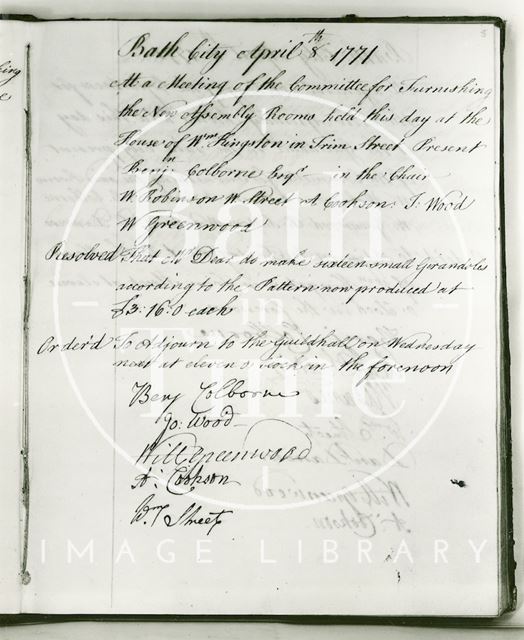 Bath City April 8th 1771
At a Meeting of the Committee for Furnishing
the New Assembly Rooms held this day at the
House of Wm Kingston in Trim Street Present
Benjn Colborne Esqr in the Chair
W Robinson W Street A Cookson J. Wood
W Greenwood
Resolved That Mr Dear do make sixteen small Girandoles
according to the Pattern now produced at
£3:16:0 each
Order'd To Adjourn to the Guildhall on Wednesday
next at eleven o'Clock in the forenoon
Benj Colborne
Jo: Wood
Will Greenwood
A: Cookson
Wm Street
Bath
in
Time
IMAGE LIBRARY